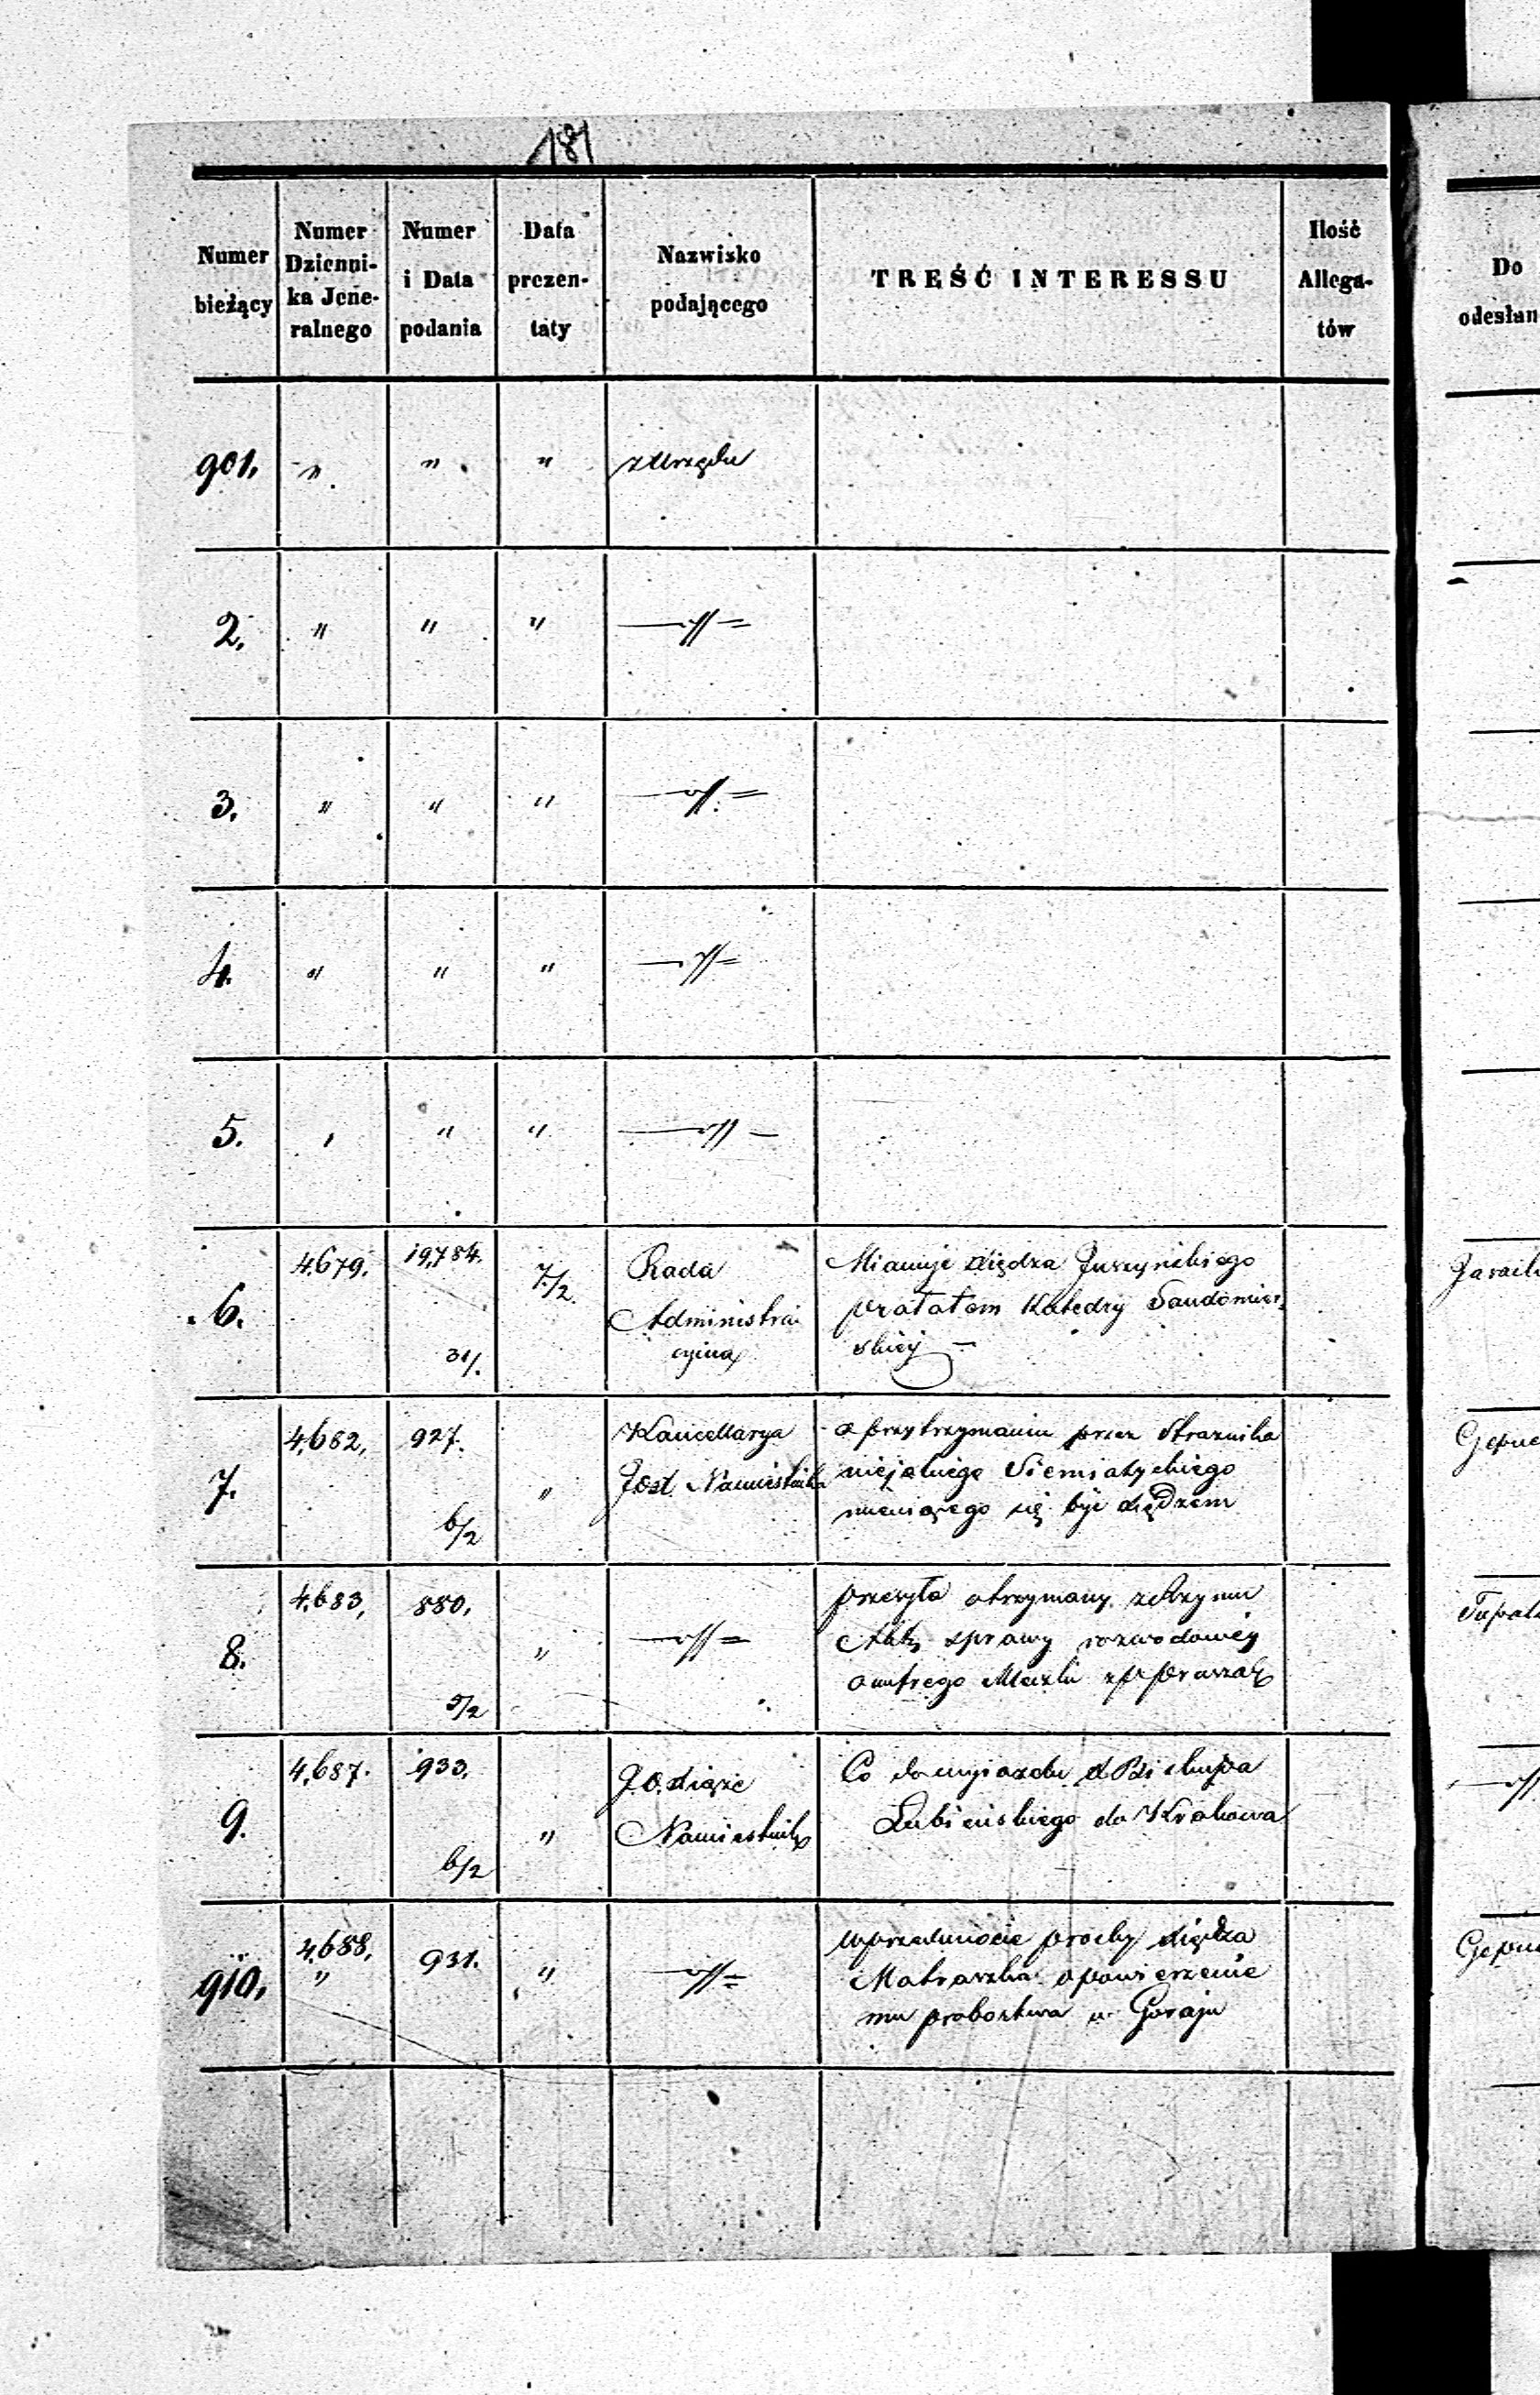 181
Numer bieżący
Numer Dzienni-
ka Jene-
ralnego
Numer i Data podania
Data prezen-
taty
Nazwisko podającego
TREŚĆ INTERESSU
Ilość Allega-
tów
Do
odesłan
901. " " " z Urzędu
2. " " " —"—
3. " " " —"—
4. " " " —"—
5. " " " —"—
6. 4,679. 19,784. 31/. 7/2.
Rada
Administra-
cyjna
Mianuje Xiędza Juszyńskiego
prałatem Katedry Sandomier-
skiej —
7. 4,682, 927. 6/2 "
Kancellarya
JOXt. Namiestnika
o przytrzymaniu przez Strażnika
niejakiego Siemiatyckiego
mieniącego się być Xiędzem
8. 4,683, 880. 5/2 " —"—
przesyła otrzymany z Rzymu
Akt sprawy rozwodowéy
9. 4,687. 933. 6/2 "
J.O. Xiąże
Namiestnik
Co do wyjazdu X Biskupa
Łubieńskiego do Krakowa
910. 4,688, " 931. " —"—
w przedmiocie prośby Xiędza
Matraszka o powierzenie
mu probostwa w Goraju